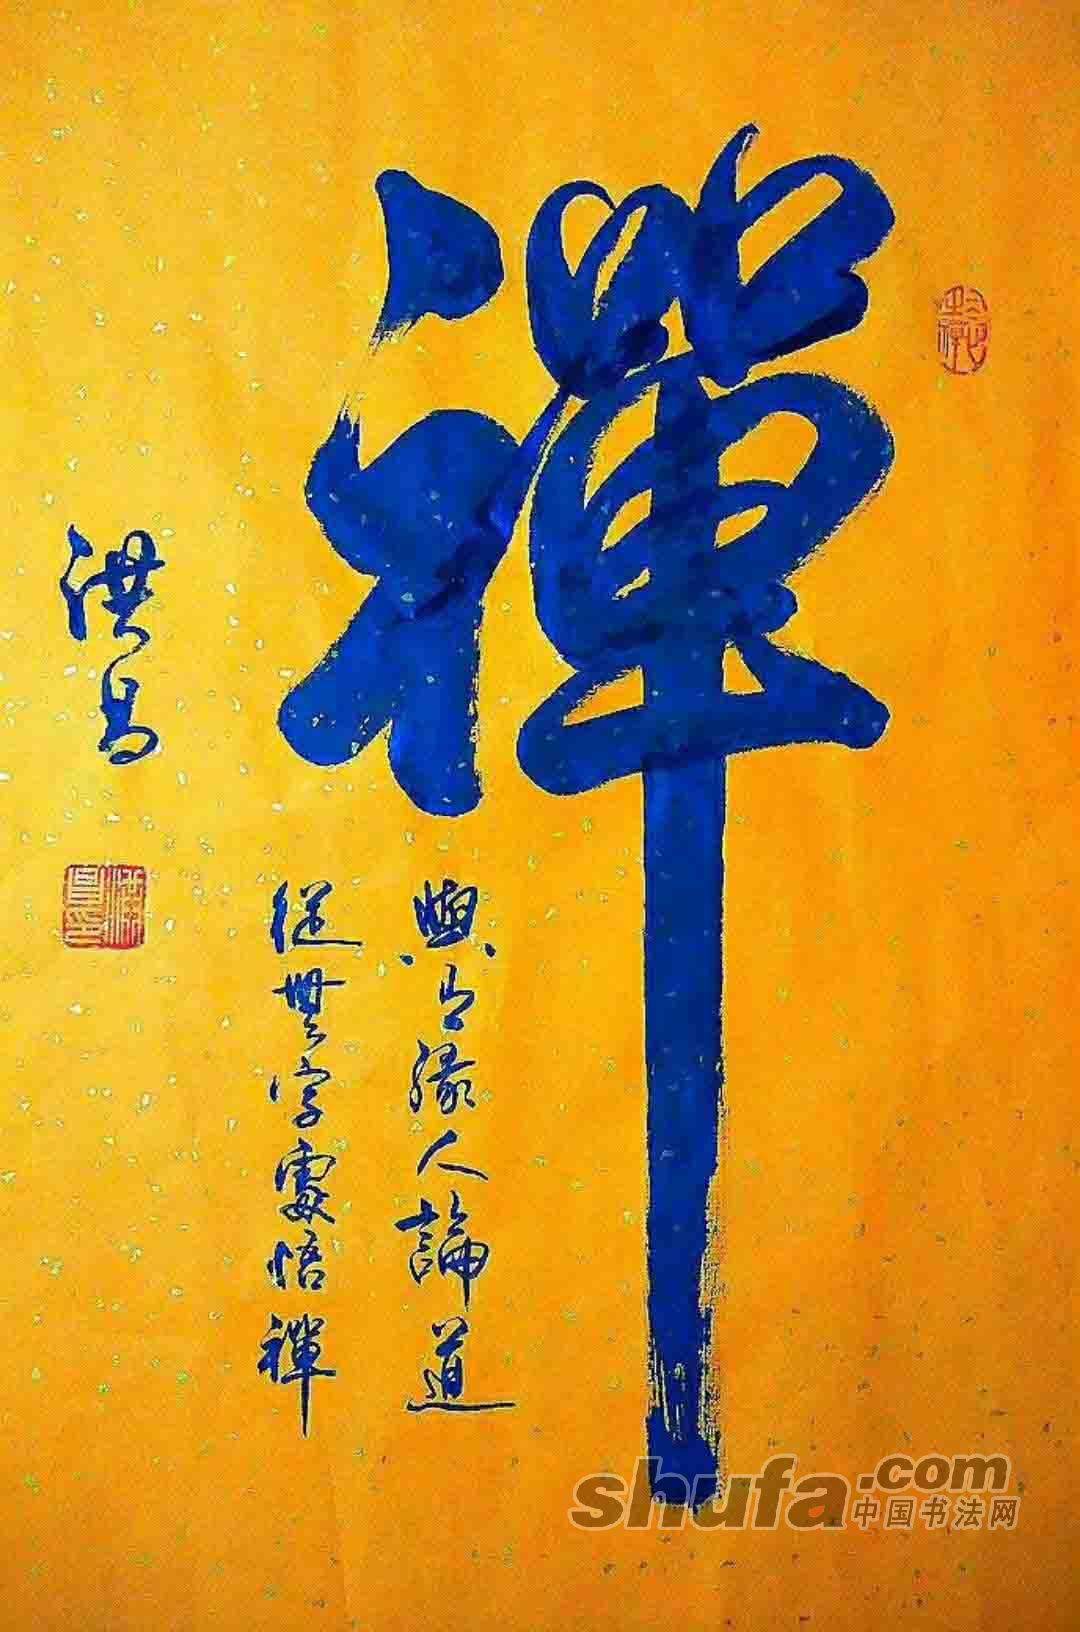 禪
與有緣人論道
從無字處悟禪
洪昌
shufa.com
中国书法网